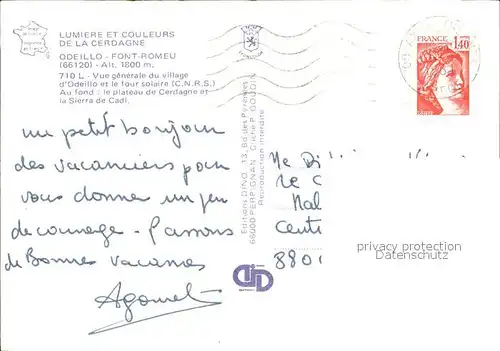 LUMIERE ET COULEURS
DE LA CERDAGNE
ODEILLO - FONT-ROMEU
(66120) - Alt. 1800 m.
710 L - Vue générale du village
d'Odeillo et le four solaire (C.N.R.S.)
Au fond : le plateau de Cerdagne et
la Sierra de Cadi.
un petit bonjour
des vacanciers pour
vous donner un peu
de courage - Passons
de Bonnes vacances
Editions DINO, 13, Bd des Pyrénées
66000 PERPIGNAN
Reproduction interdite
FRANCE
1,40
Me
Cent
880
privacy protection
Datenschutz